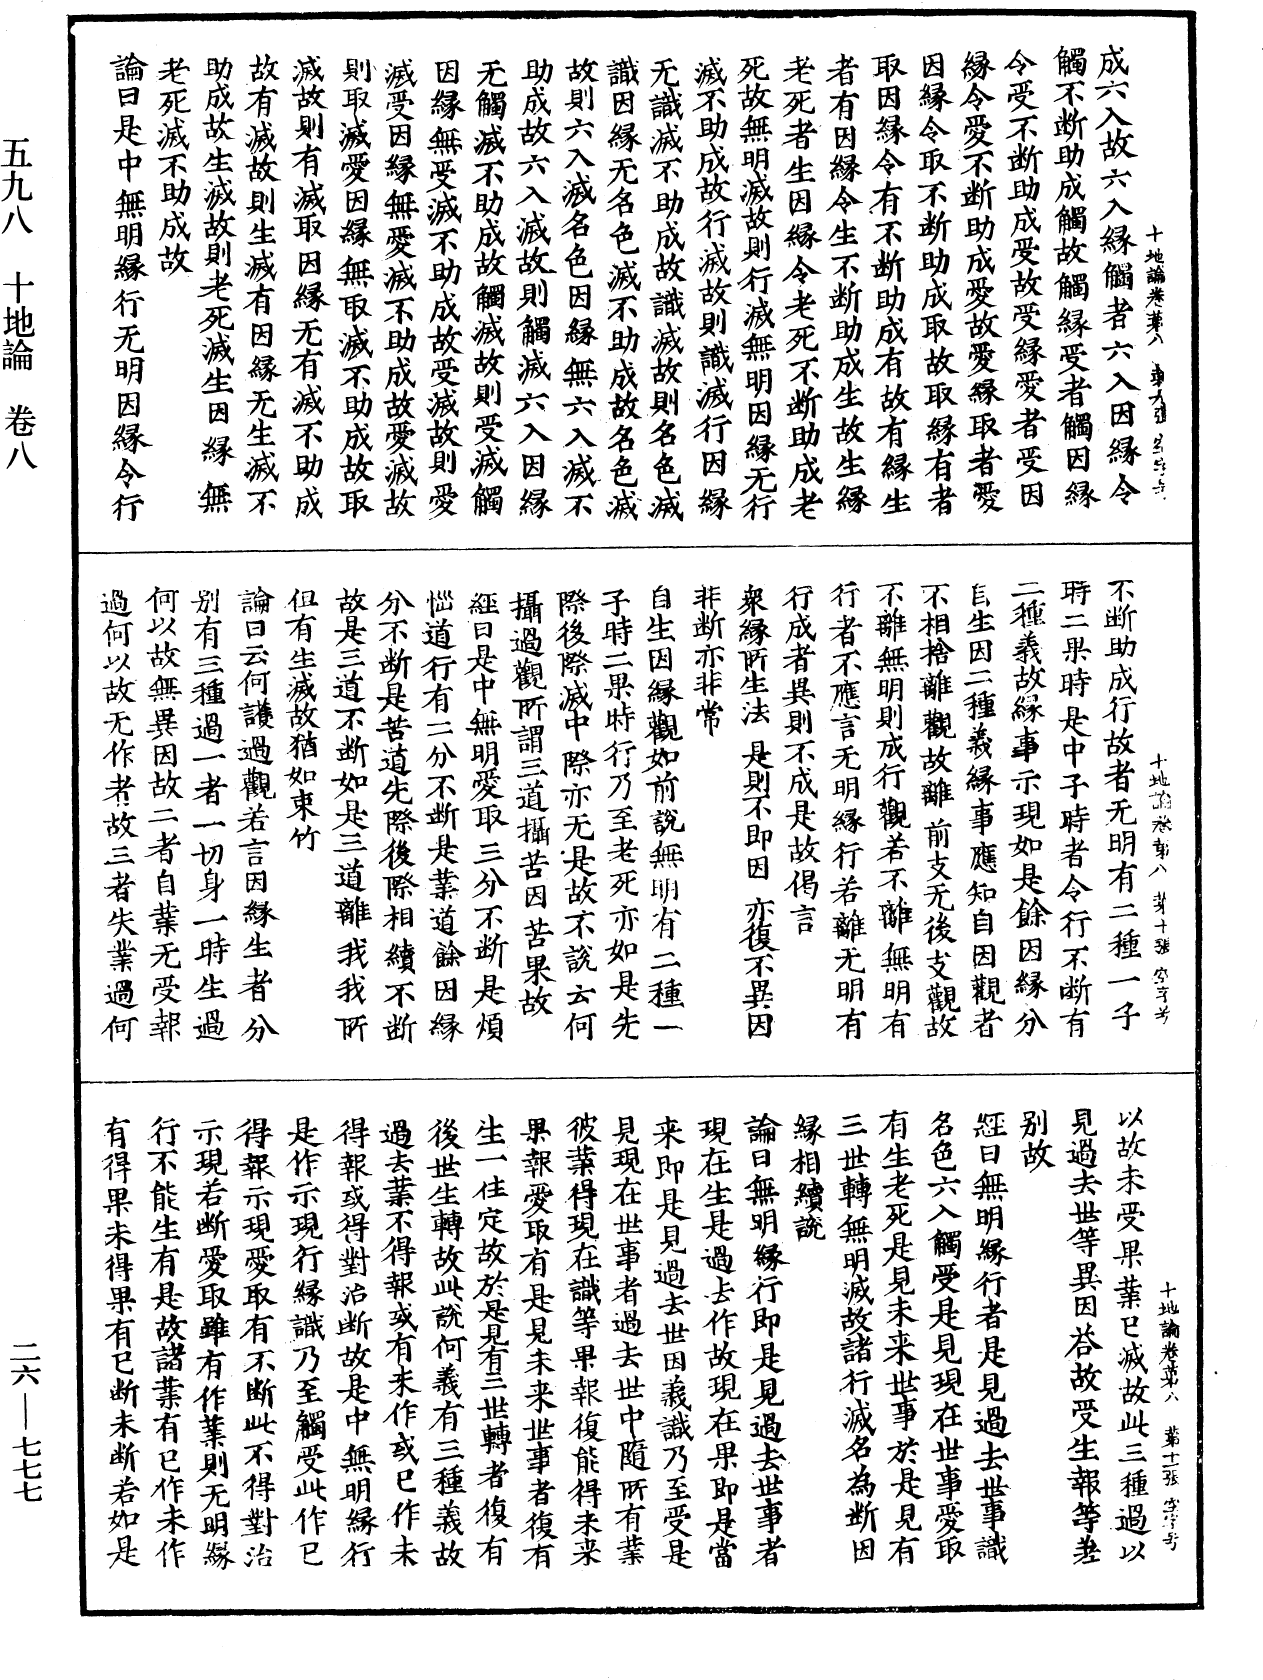 成六入故六入縁觸者六入因縁令
觸不断助成觸故觸縁受者觸因縁
令受不断助成受故受縁愛者受因
縁令愛不断助成愛故愛縁取者愛
因縁令取不断助成取故取縁有者
取因縁令有不断助成有故有縁生
者有因縁令生不断助成生故生縁
老死者生因縁令老死不断助成老
死故無明滅故則行滅無明因縁无行
滅不助成故行滅故則識滅行因縁
无識滅不助成故識滅故則名色滅
識因縁无名色滅不助成故名色滅
故則六入滅名色因縁無六入滅不
助成故六入滅故則觸滅六入因縁
无觸滅不助成故觸滅故則受滅觸
因縁無受滅不助成故受滅故則愛
滅受因縁無愛滅不助成故愛滅故
則取滅愛因縁無取滅不助成故取
滅故則有滅取因縁无有滅不助成
故有滅故則生滅有因縁无生滅不
助成故生滅故則老死滅生因縁無
老死滅不助成故
論曰是中無明縁行无明因縁令行
十地論卷第八
不断助成行故者无明有二種一子
時二果時是中子時者令行不断有
二種義故縁事示現如是餘因縁分
自生因二種義縁事應知自因觀者
不相捨離觀故離前支无後支觀故
不離無明則成行觀若不離無明有
行者不應言无明縁行若離无明有
行成者異則不成是故偈言
衆縁所生法 是則不即因 亦復不異因
非断亦非常
自生因縁觀如前說無明有二種一
子時二果時行乃至老死亦如是先
際後際滅中際亦无是故不說云何
攝過觀所謂三道攝苦因苦果故
經曰是中無明愛取三分不断是煩
惱道行有二分不断是業道餘因縁
分不断是苦道先際後際相續不断
故是三道不断如是三道離我我所
但有生滅故猶如束竹
論曰云何護過觀若言因縁生者分
別有三種過一者一切身一時生過
何以故無異因故二者自業无受報
過何以故无作者故三者失業過何
十地論卷第八 第十張
以故未受果業已滅故此三種過以
見過去世等異因荅故受生報等差
别故
經曰無明縁行者是見過去世事識
名色六入觸受是見現在世事愛取
有生老死是見未来世事於是見有
三世轉無明滅故諸行滅名為断因
縁相續說
論曰無明縁行即是見過去世事者
現在生是過去作故現在果即是當
来即是見過去世因義識乃至受是
見現在世事者過去世中隨所有業
彼業得現在識等果報復能得未来
果報愛取有是見未来世事者復有
生一住定故於是見有三世轉者復有
後世生轉故此說何義有三種義故
過去業不得報或有未作或已作未
得報或得對治断故是中無明縁行
是作示現行縁識乃至觸受此作已
得報示現愛取有不断此不得對治
示現若断愛取雖有作業則无明縁
行不能生有是故諸業有已作未作
有得果未得果有已断未断若如是
十地論卷第八 第十一張
五九八 十地論 卷八
二六—七七七